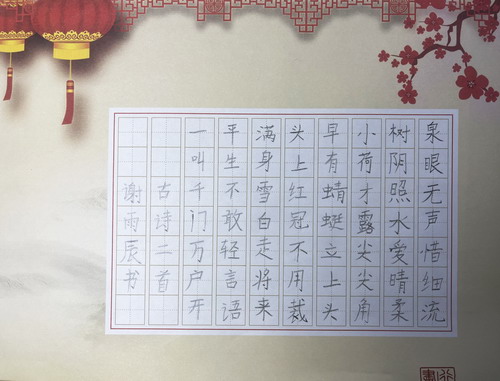 泉眼无声惜细流
树阴照水爱晴柔
小荷才露尖尖角
早有蜻蜓立上头
头上红冠不用裁
满身雪白走将来
平生不敢轻言语
一叫千门万户开
古诗二首
谢雨辰书